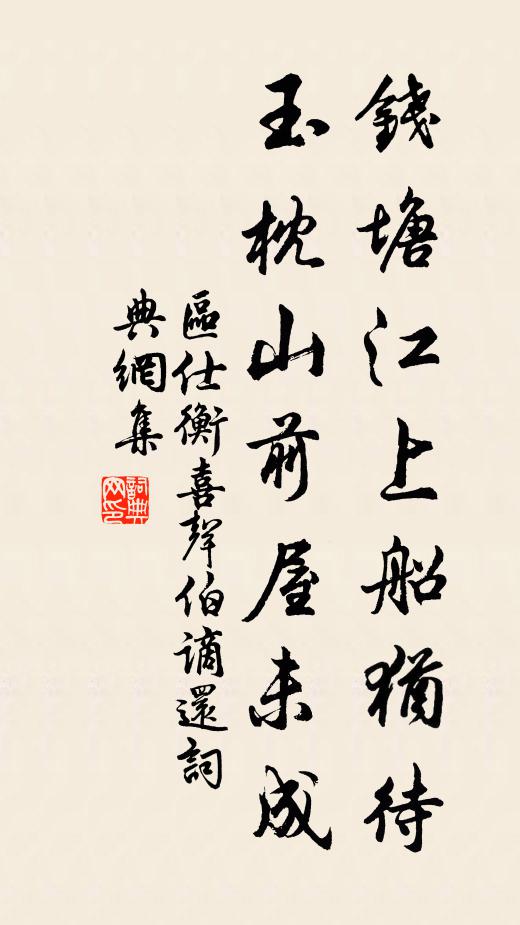 錢塘江上船猶待
玉枕山前屋未成
區仕衡喜聲伯謫還詞
典網集
詞典網印